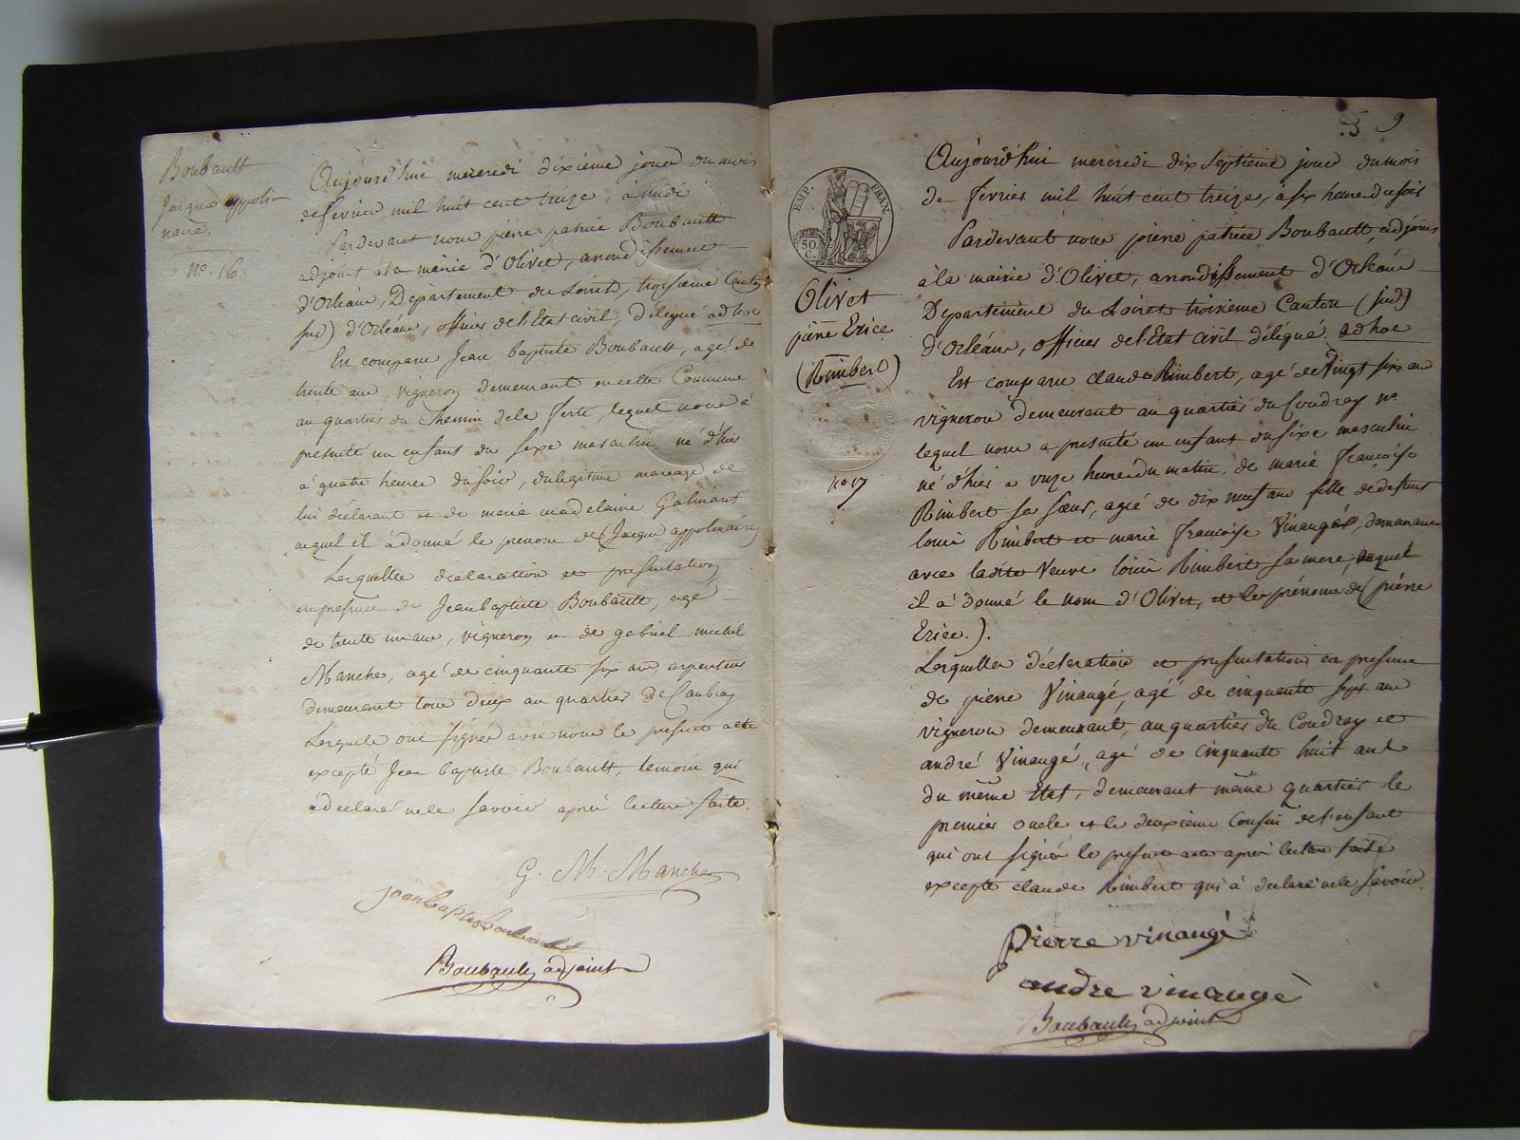 Boubault
Jacques appoli-
naire.
no. 16
Aujourd'hui mercredi dixieme jour du mois
de fevrier mil huit cent treize, à midi
Pardevant nous pierre patrice Boubault
adjoint à la mairie d'Olivet, arrondissement
d'Orléans, Département du Loiret, troisieme Canton
sud) d'Orléans, officier de l'Etat civil, délégué ad hoc
Est comparu Jean baptiste Boubault, agé de
trente ans, vigneron demeurant en cette Commune
au quartier du Chemin dela ferté, lequel nous a
presenté un enfant du sexe masculin né d'hier
à quatre heures du soir, du legitime mariage de
lui déclarant et de marie madelaine Galinant
auquel il à donné le prenom de (Jacques appolinaire)
Lesquelles declaration et presentation
en presence de Jean baptiste Boubault, agé
de trente un ans, vigneron et de gabriel michel
Manche, agé de cinquante six ans arpenteur
demeurant tous deux au quartier de Caubray
Lesquels ont signés avec nous le present acte
excepté Jean baptiste Boubault, temoin qui
à déclaré ne le savoir après lecture faite.
G. M. Manche
jean baptiste boubault
Boubault adjoint
9
EMP. FRAN.
50
C.
Olivet
pierre Erice
(Rimbert)
no 17
Aujourd'hui mercredi dix septieme jour du mois
de fevrier mil huit cent treize, à six heures du soir
Pardevant nous pierre patrice Boubault, adjoint
à la mairie d'Olivet, arrondissement d'Orléans
Departement du Loiret troisieme Canton (sud)
d'Orléans, officier de l'Etat civil délégué ad hoc
Est comparu claude Rimbert, agé de Vingt six ans
vigneron demeurant au quartier du Coudray
lequel nous a presenté un enfant du sexe masculin
né d'hier a onze heures du matin, de marie françoise
Rimbert sa sœur, agée de dix neuf ans fille de defunt
louis Rimbert et marie françoise Vinaugé, demeurant
avec ladite Veuve louis Rimbert sa mere, auquel
il a donné le nom d'Olivet, et les prénoms de (pierre
Erice.).
Lesquelles déclaration et presentation en presence
de pierre Vinaugé, agé de cinquante sept ans
vigneron demeurant, au quartier du Coudray et
andré Vinaugé, agé de cinquante huit ans
du même Etat, demeurant même quartier le
premier oncle et le deuxième Cousin de l'enfant
qui ont signés le present acte après lecture faite
excepté claude Rimbert qui à declaré ne le savoir.
pierre vinaugé
andre vinaugé
Boubault adjoint